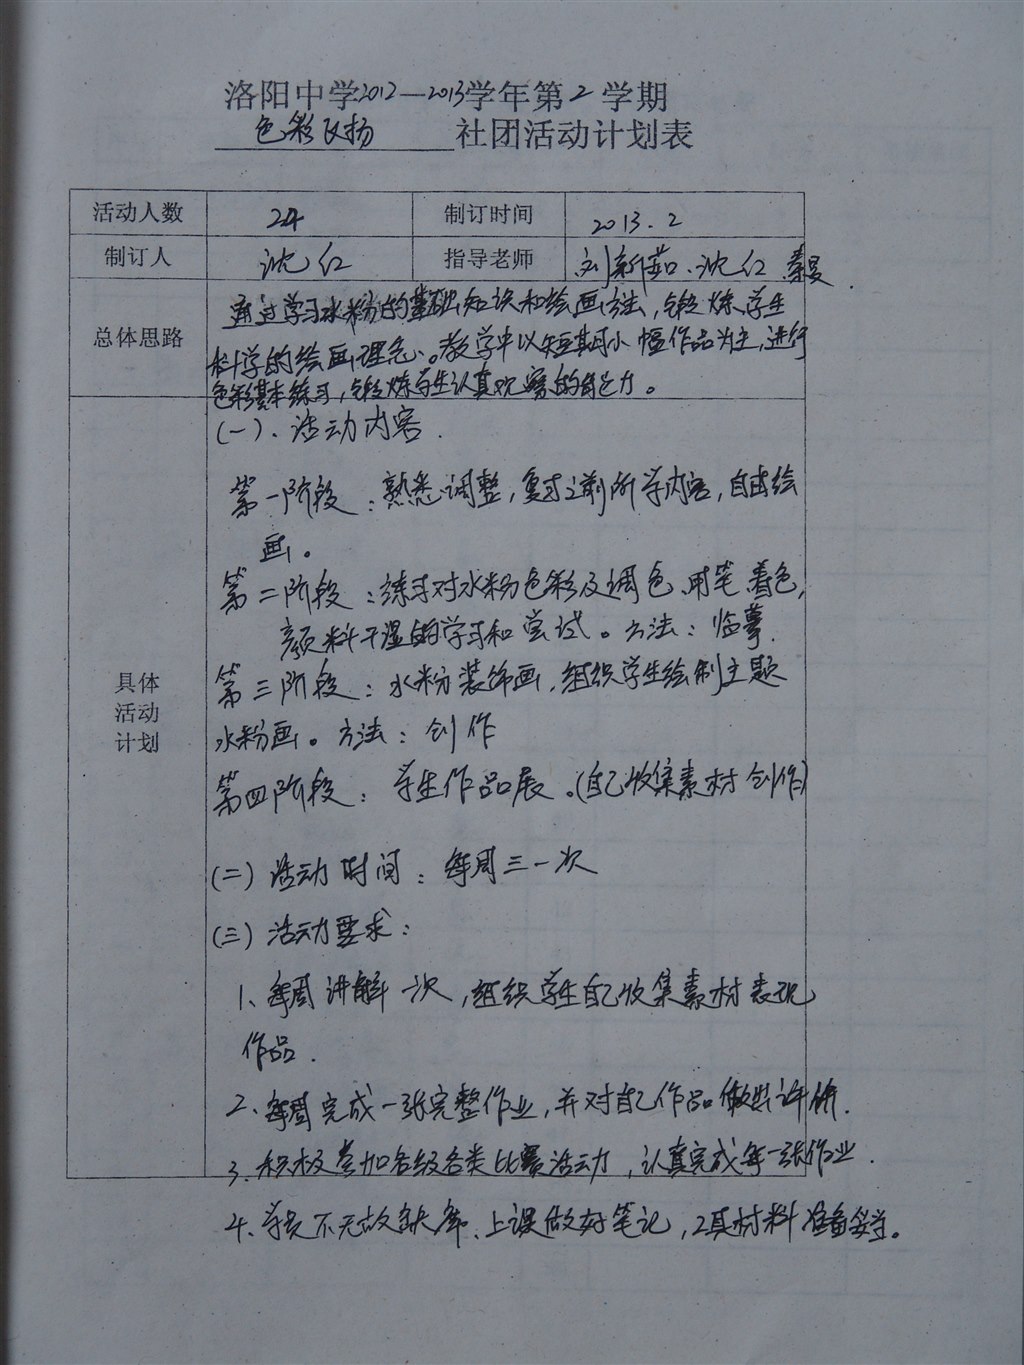 洛阳中学2012—2013学年第2学期
色彩飞扬 社团活动计划表
活动人数 24 制订时间 2013.2
制订人 沈红 指导老师 刘新茹、沈红、秦旻
总体思路
通过学习水粉的基础知识和绘画方法，锻炼学生
科学的绘画理念。教学中以短期小幅作品为主，进行
色彩基本练习，锻炼学生认真观察的能力。
具体
活动
计划
(一)、活动内容.
第一阶段：熟悉调整，复习之前所学内容，自由绘
画。
第二阶段：练习对水粉色彩及调色、用笔、着色，
颜料干湿的学习和尝试。方法：临摹.
第三阶段：水粉装饰画，组织学生绘制主题
水粉画。方法：创作
第四阶段：学生作品展。(自己收集素材创作)
(二)活动时间：每周三一次
(三)活动要求：
1、每周讲解一次，组织学生自己收集素材表现
作品.
2、每周完成一张完整作业，并对自己作品做出评价.
3、积极参加各级各类比赛活动，认真完成每一张作业.
4、学员不无故缺席、上课做好笔记，工具材料准备妥当。